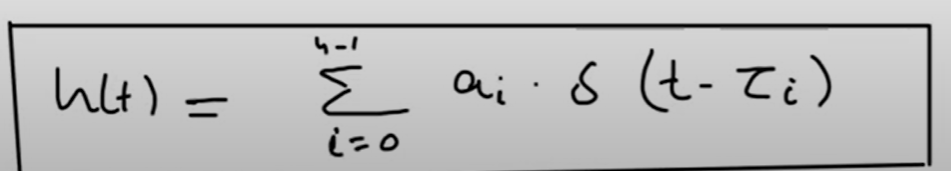 h(t) = \sum_{i=0}^{n-1} a_i · δ (t - τ_i)